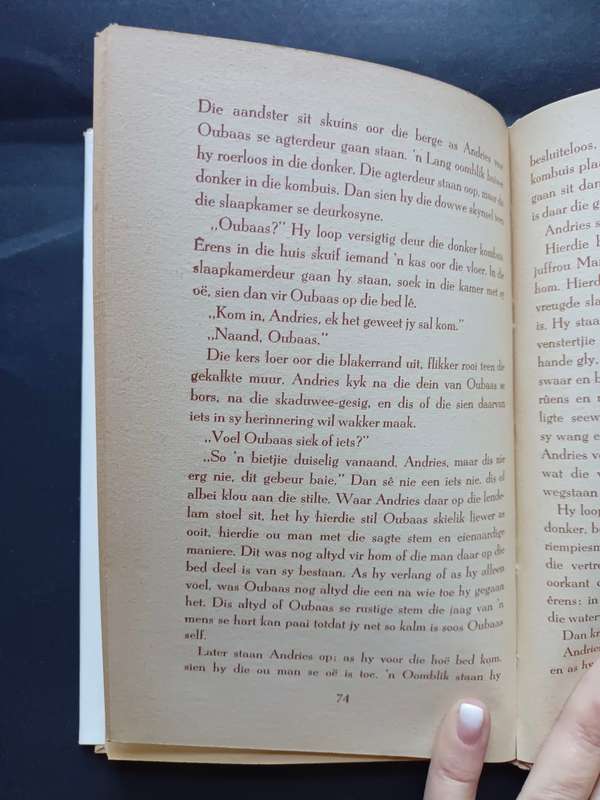 Die aandster sit skuins oor die berge as Andries voor
Oubaas se agterdeur gaan staan. 'n Lang oomblik
hy roerloos in die donker. Die agterdeur staan oop, maar
donker in die kombuis. Dan sien hy die dowwe skynsel teen
die slaapkamer se deurkosyne.
„Oubaas?” Hy loop versigtig deur die donker kombuis.
Êrens in die huis skuif iemand 'n kas oor die vloer. In die
slaapkamerdeur gaan hy staan, soek in die kamer met sy
oë, sien dan vir Oubaas op die bed lê.
„Kom in, Andries, ek het geweet jy sal kom.”
„Naand, Oubaas.”
Die kers loer oor die blakerrand uit, flikker rooi teen die
gekalkte muur. Andries kyk na die dein van Oubaas se
bors, na die skaduwee-gesig, en dis of die sien daarvan
iets in sy herinnering wil wakker maak.
„Voel Oubaas siek of iets?”
„So 'n bietjie duiselig vanaand, Andries, maar dis nie
erg nie, dit gebeur baie.” Dan sê nie een iets nie, dis of
albei klou aan die stilte. Waar Andries daar op die lende-
lam stoel sit, het hy hierdie stil Oubaas skielik liewer as
ooit, hierdie ou man met die sagte stem en eienaardige
maniere. Dit was nog altyd vir hom of die man daar op die
bed deel is van sy bestaan. As hy verlang of as hy alleen
voel, was Oubaas nog altyd die een na wie toe hy gegaan
het. Dis altyd of Oubaas se rustige stem die jaag van 'n
mens se hart kan paai totdat jy net so kalm is soos Oubaas
self.
Later staan Andries op; as hy voor die hoë bed kom,
sien hy die ou man se oë is toe. 'n Oomblik staan hy
74
besluiteloos,
kombuis
gaan sit dan
is daar die
Andries
Hierdie
juffrou
hom.
vreugde
is. Hy
venstertjie
hande gly,
swaar en
rûens en
ligte
sy wang
Andries
wat die
wegstaan
Hy loop
donker,
die
oorkant
êrens: in
die
Dan
Andries
en as hy